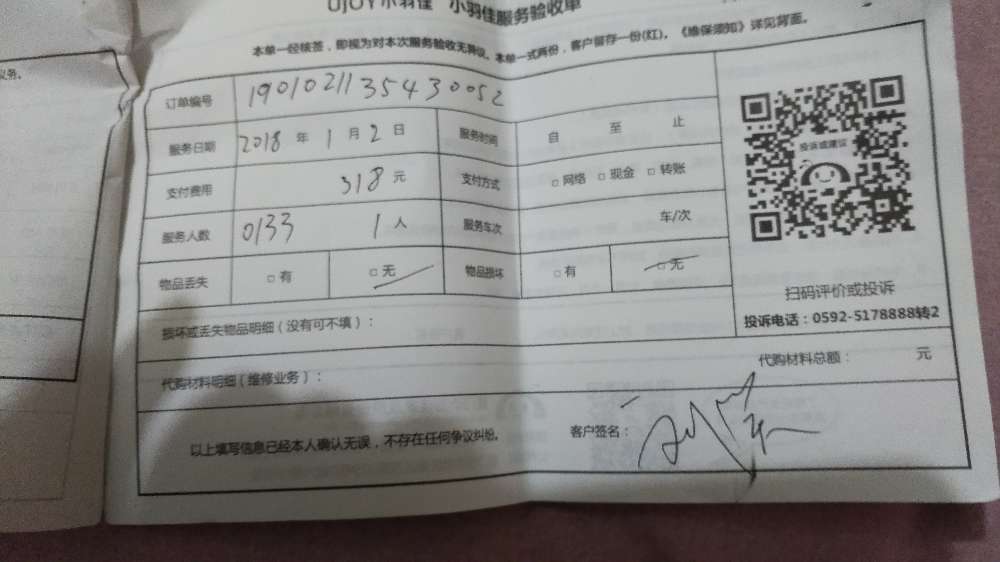 UJOY小羽佳 小羽佳服务验收单
本单一经核签，即视为对本次服务验收无异议。本单一式两份，客户留存一份(红)。《维保须知》详见背面。
订单编号 1901021135430052
服务日期 2018 年 1 月 2 日 服务时间 自 至 止
支付费用 318 元 支付方式 □ 网络 □ 现金 □ 转账
服务人数 0133 1 人 服务车次 车/次
物品丢失 □ 有 □ 无 物品损坏 □ 有 □ 无
投诉或建议
扫码评价或投诉
投诉电话：0592-5178888转2
损坏或丢失物品明细（没有可不填）：
代购材料明细（维修业务）： 代购材料总额： 元
以上填写信息已经本人确认无误，不存在任何争议纠纷。 客户签名：